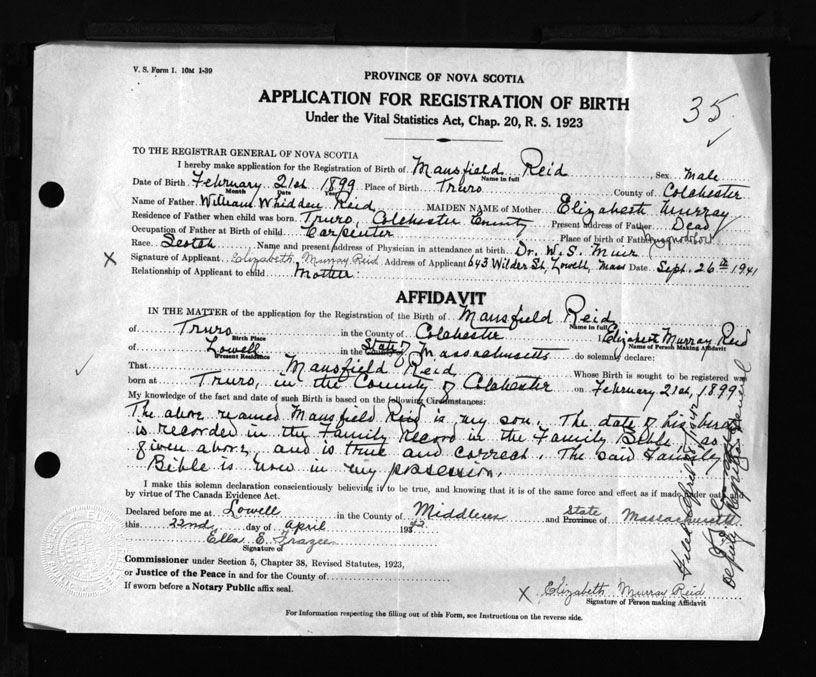 V. S. Form 1. 10M 1-39
PROVINCE OF NOVA SCOTIA
APPLICATION FOR REGISTRATION OF BIRTH
Under the Vital Statistics Act, Chap. 20, R. S. 1923
35
TO THE REGISTRAR GENERAL OF NOVA SCOTIA
I hereby make application for the Registration of Birth of Mansfield Reid Sex Male
Name in full
Date of Birth February 21st 1899 Place of Birth Truro County of Colchester
Month Date Year
Name of Father William Whidden Reid MAIDEN NAME of Mother Elizabeth Murray
Residence of Father when child was born Truro, Colchester County Present address of Father Dead
Occupation of Father at Birth of child Carpenter Place of birth of Father
Race Scotch Name and present address of Physician in attendance at birth Dr. W. S. Muir
X Signature of Applicant Elizabeth Murray Reid Address of Applicant 643 Wilder St, Lowell, Mass Date Sept. 26th 1941
Relationship of Applicant to child Mother
AFFIDAVIT
IN THE MATTER of the application for the Registration of the Birth of Mansfield Reid
Name in full
of Truro in the County of Colchester I Elizabeth Murray Reid
Birth Place Name of Person Making Affidavit
of Lowell in the State of Massachusetts do solemnly declare:
Present Residence
That Mansfield Reid Whose Birth is sought to be registered was
born at Truro, in the County of Colchester on February 21st, 1899
My knowledge of the fact and date of such Birth is based on the following Circumstances:
The above named Mansfield Reid is my son. The date of his birth
is recorded in the Family Record in the Family Bible, as
given above, and is true and correct. The said Family
Bible is now in my possession.
I make this solemn declaration conscientiously believing it to be true, and knowing that it is of the same force and effect as if made under oath and
by virtue of The Canada Evidence Act.
Declared before me at Lowell in the County of Middlesex and State Province of Massachusetts
this 22nd day of April 1942
Ella E. Frazee
Signature of
Commissioner under Section 5, Chapter 38, Revised Statutes, 1923,
or Justice of the Peace in and for the County of
If sworn before a Notary Public affix seal.
X Elizabeth Murray Reid
Signature of Person making Affidavit
For Information respecting the filling out of this Form, see Instructions on the reverse side.
Deputy Registrar General